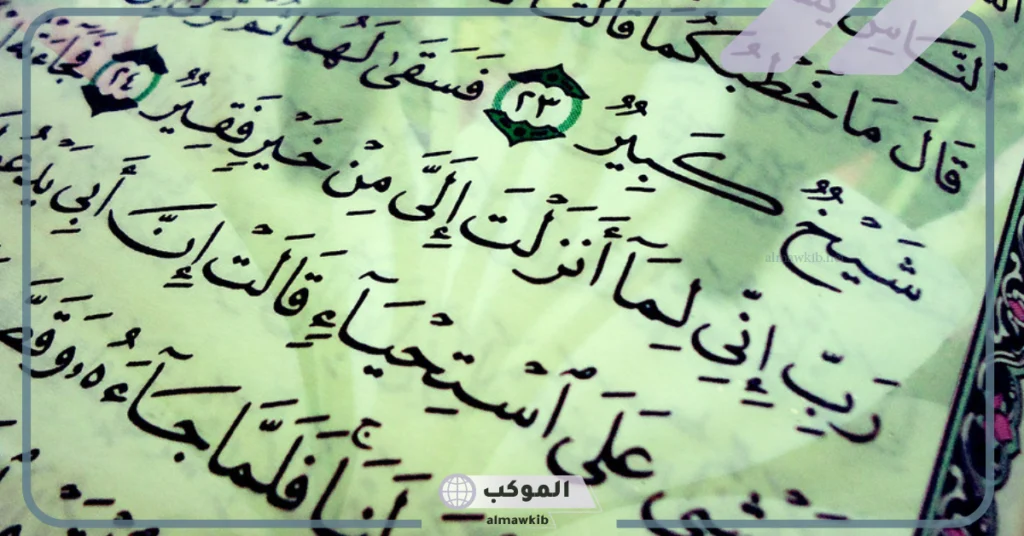 ٱلنَّاسِ
قَالَ مَا خَطْبُكُمَا قَالَتَا
شَيْخٌ كَبِيرٌ ٢٣ فَسَقَىٰ لَهُمَا
رَبِّ إِنِّي لِمَآ أَنزَلْتَ إِلَيَّ مِنْ خَيْرٍ فَقِيرٌ ٢٤ فَجَآءَتْهُ
عَلَى ٱسْتِحْيَآءٍ قَالَتْ إِنَّ أَبِي
لَنَا ۚ فَلَمَّا جَآءَهُۥ وَقَصَّ
almawkib.net
الموكب
almawkib